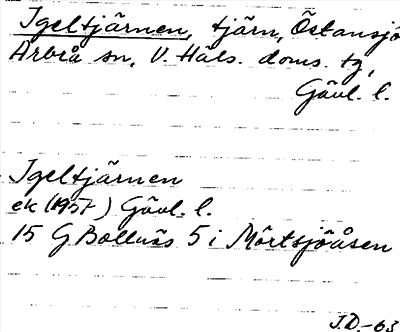 Igeltjärnen, tjärn, Östansjö
Arbrå sn, V. Häls. doms. tg,
Gävl. l.
Igeltjärnen
ek (1957) Gävl. l.
15 G Bollnäs 5 i Mörtsjöåsen
J.D.-63